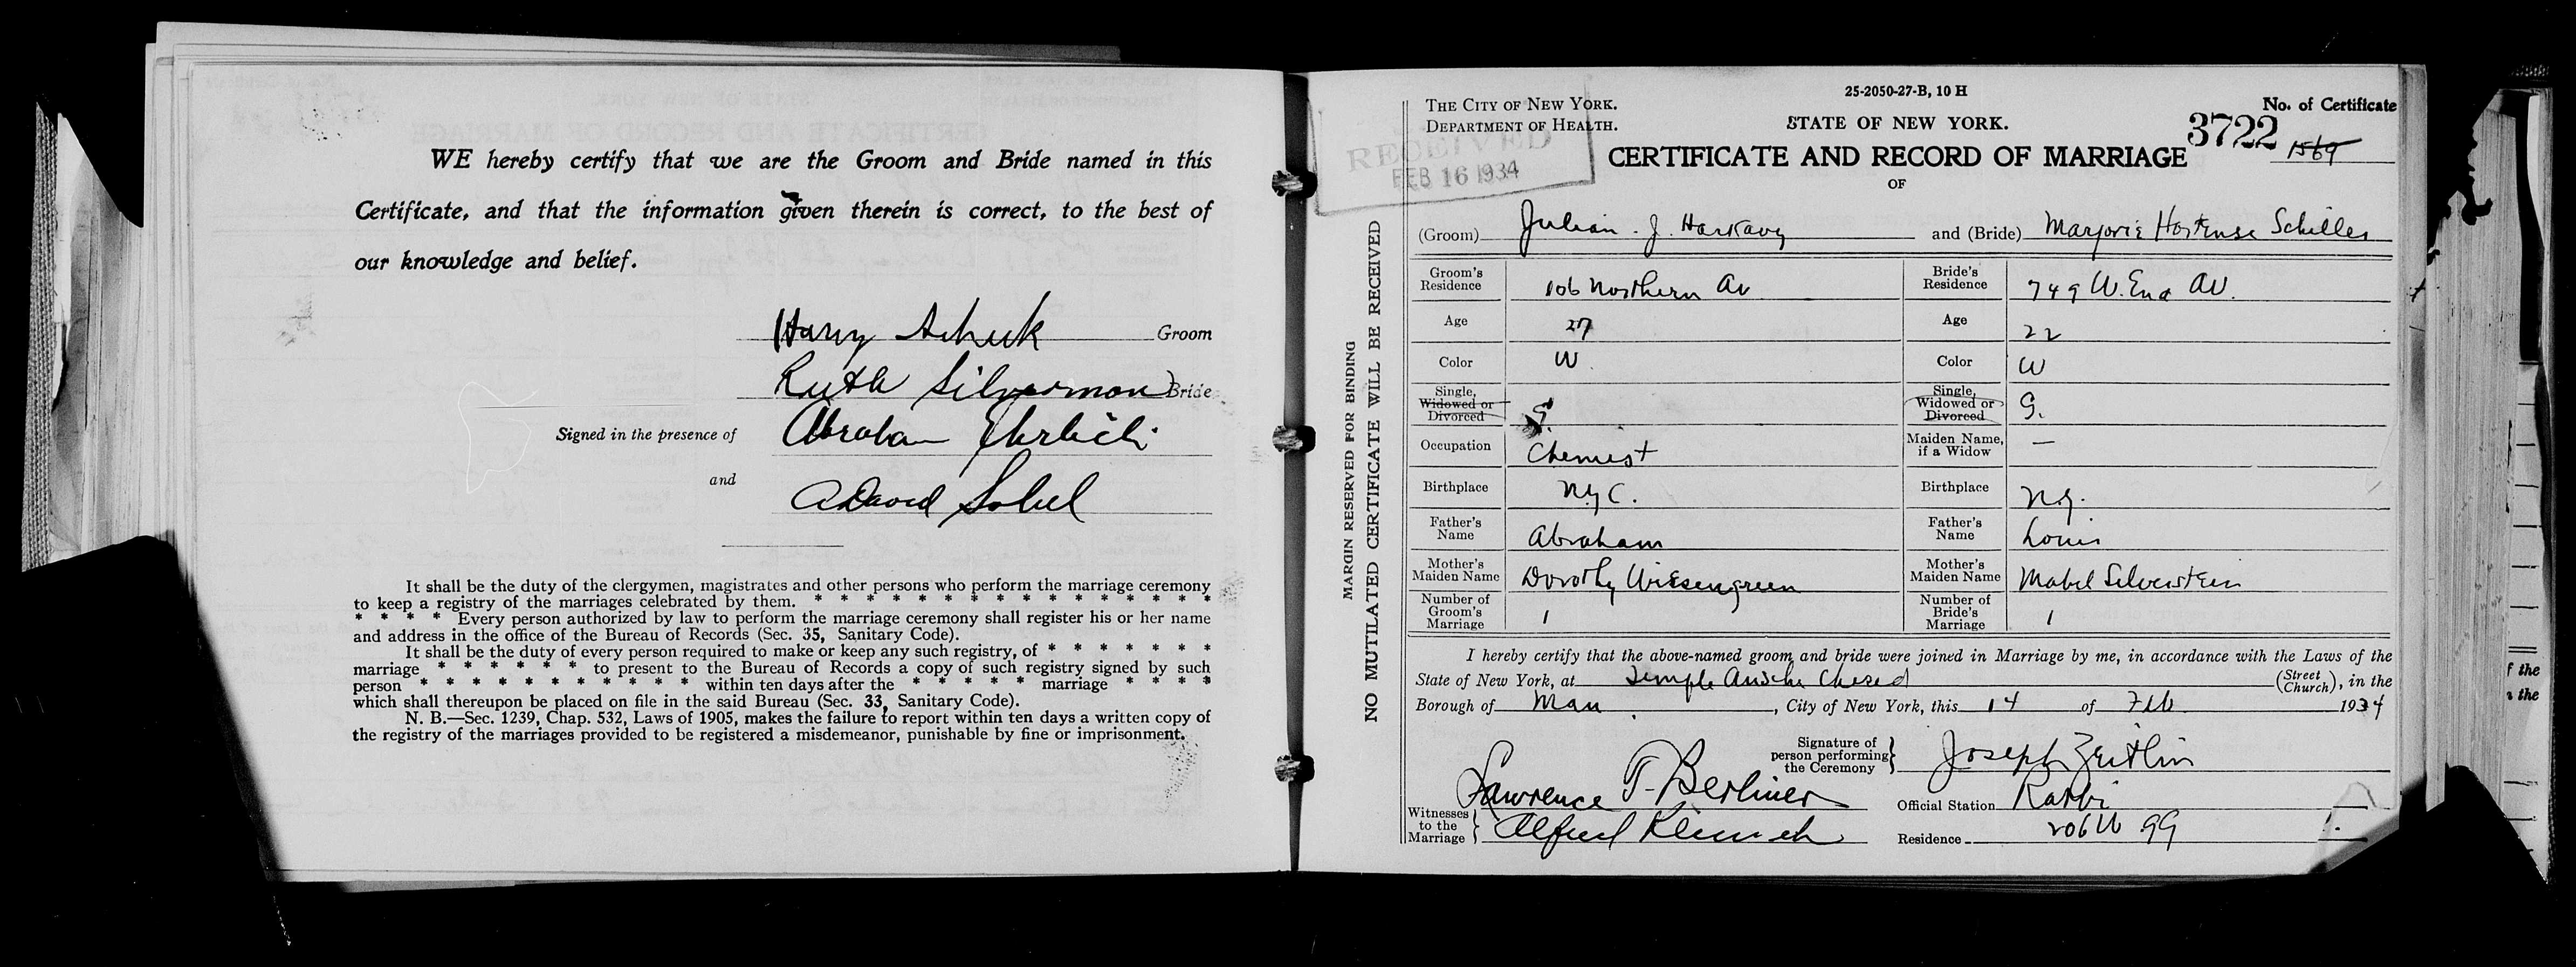 WE hereby certify that we are the Groom and Bride named in this
Certificate, and that the information given therein is correct, to the best of
our knowledge and belief.
Harry Schuk Groom
Ruth Silverman Bride
Signed in the presence of Abraham Ehrlich
and David Sobel
It shall be the duty of the clergymen, magistrates and other persons who perform the marriage ceremony
to keep a registry of the marriages celebrated by them. * * * * * * * * * * * * * * * *
* * * * Every person authorized by law to perform the marriage ceremony shall register his or her name
and address in the office of the Bureau of Records (Sec. 35, Sanitary Code).
It shall be the duty of every person required to make or keep any such registry, of * * * * * * *
marriage * * * * * * to present to the Bureau of Records a copy of such registry signed by such
person * * * * * * * * * * * within ten days after the * * * * * marriage * * * *
which shall thereupon be placed on file in the said Bureau (Sec. 33, Sanitary Code).
N. B.—Sec. 1239, Chap. 532, Laws of 1905, makes the failure to report within ten days a written copy of
the registry of the marriages provided to be registered a misdemeanor, punishable by fine or imprisonment.
MARGIN RESERVED FOR BINDING
NO MUTILATED CERTIFICATE WILL BE RECEIVED
25-2050-27-B, 10 H
THE CITY OF NEW YORK.
DEPARTMENT OF HEALTH.
STATE OF NEW YORK.
No. of Certificate
3722
1569
RECEIVED
FEB 16 1934
CERTIFICATE AND RECORD OF MARRIAGE
OF
(Groom) Julian J. Harkavy and (Bride) Marjorie Hortense Schiller
Groom's Residence 106 Northern Av Bride's Residence 749 W. End Av.
Age 27 Age 22
Color W. Color W
Single, Widowed or Divorced S. Single, Widowed or Divorced S.
Occupation Chemist Maiden Name, if a Widow —
Birthplace N.Y.C. Birthplace N.Y.
Father's Name Abraham Father's Name Louis
Mother's Maiden Name Dorothy Wiesengreen Mother's Maiden Name Mabel Silverstein
Number of Groom's Marriage 1 Number of Bride's Marriage 1
I hereby certify that the above-named groom and bride were joined in Marriage by me, in accordance with the Laws of the
State of New York, at Temple Ansche Chesed (Street Church), in the
Borough of Man, City of New York, this 14 of Feb 1934
Signature of person performing the Ceremony Joseph Zeitlin
Witnesses to the Marriage Lawrence T. Berliner Official Station Rabbi
Alfred Residence 206 W 99
f the
n the